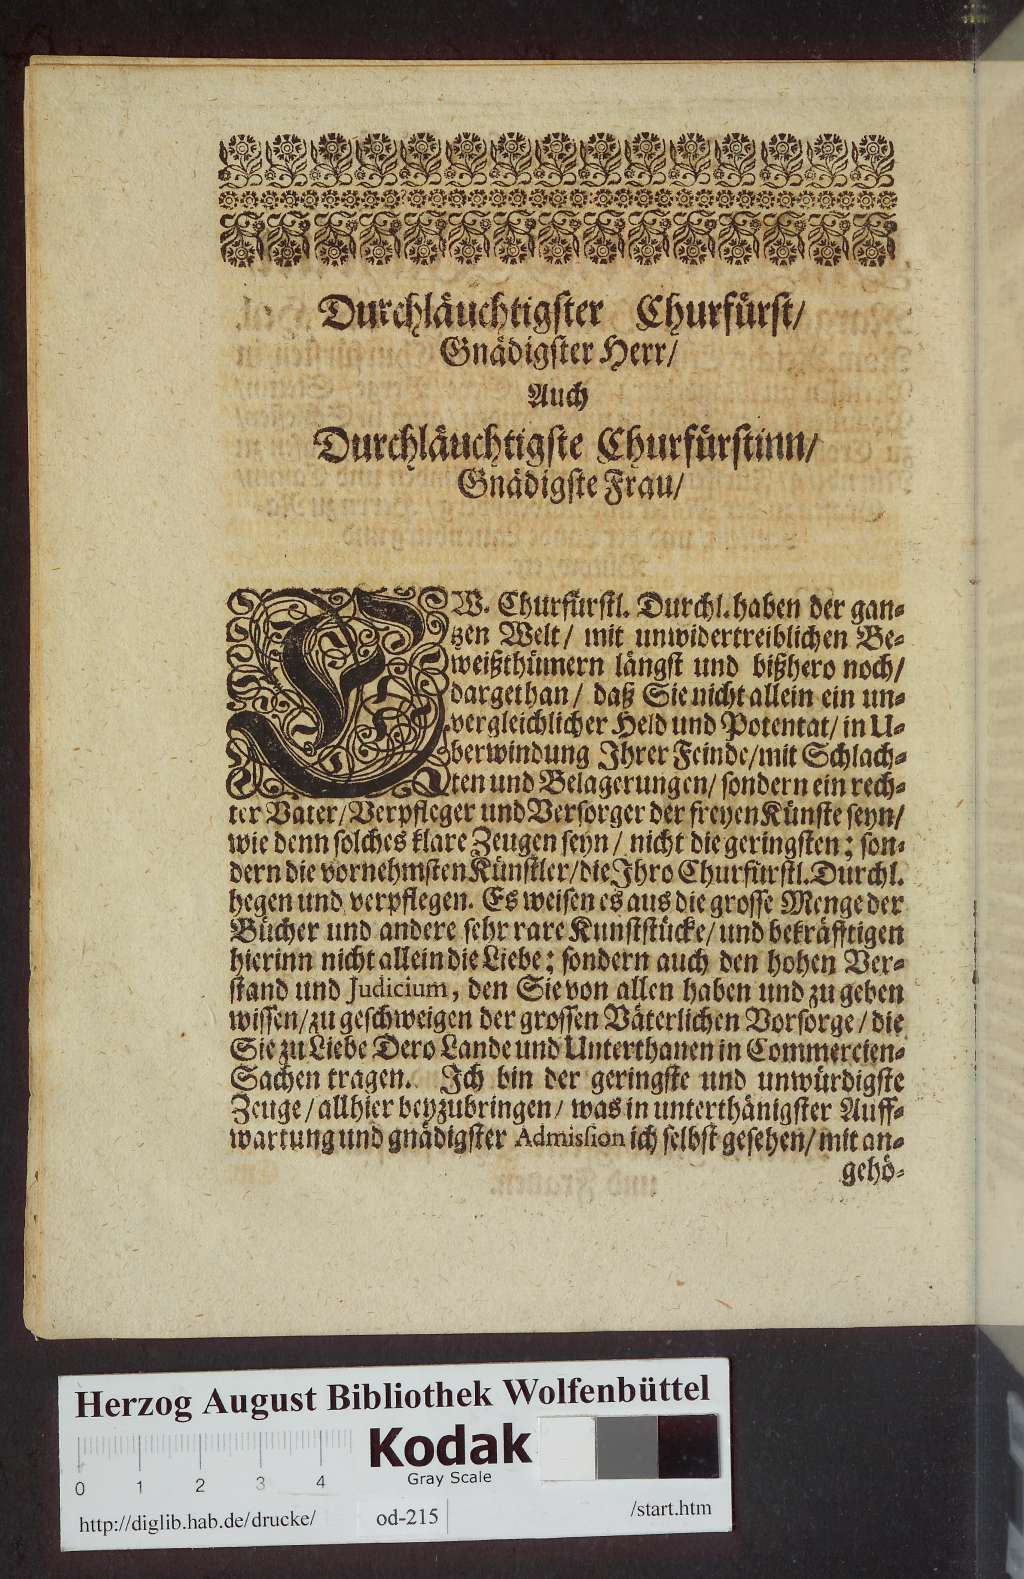 Durchläuchtigster Churfürst/
Gnädigster Herr/
Auch
Durchläuchtigste Churfürstinn/
Gnädigste Frau/
EW. Churfürstl. Durchl. haben der gan-
tzen Welt/ mit unwidertreiblichen Be-
weißthümern längst und bißhero noch/
dargethan/ daß Sie nicht allein ein un-
vergleichlicher Held und Potentat/ in U-
berwindung Ihrer Feinde/ mit Schlach-
ten und Belagerungen/ sondern ein rech-
ter Vater/ Verpfleger und Versorger der freyen Künste seyn/
wie denn solches klare Zeugen seyn/ nicht die geringsten; son-
dern die vornehmsten Künstler/ die Ihro Churfürstl. Durchl.
hegen und verpflegen. Es weisen es aus die grosse Menge der
Bücher und andere sehr rare Kunststücke/ und bekräfftigen
hierinn nicht allein die Liebe; sondern auch den hohen Ver-
stand und Judicium, den Sie von allen haben und zu geben
wissen/ zu geschweigen der grossen Väterlichen Vorsorge/ die
Sie zu Liebe Dero Lande und Unterthanen in Commercien-
Sachen tragen. Ich bin der geringste und unwürdigste
Zeuge/ allhier beyzubringen/ was in unterthänigster Auff-
wartung und gnädigster Admission ich selbst gesehen/ mit an-
gehö-
Herzog August Bibliothek Wolfenbüttel
Kodak
Gray Scale
0 1 2 3 4
http://diglib.hab.de/drucke/ od-215 /start.htm